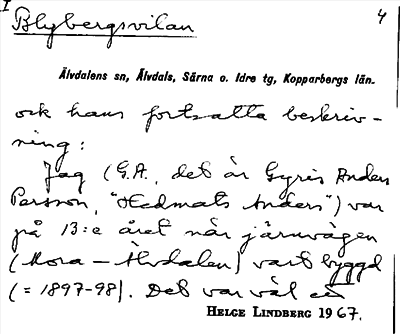 I
Blybergsvilan 4
Älvdalens sn, Älvdals, Särna o. Idre tg, Kopparbergs län.
och hans fortsatta beskriv-
ning:
Jag (G.A., det är Gyris Anders
Persson, "Hedmats Anders") var
på 13:e året när järnvägen
(Mora – Älvdalen) vart byggd
(= 1897-98). Det var väl en
HELGE LINDBERG 1967.